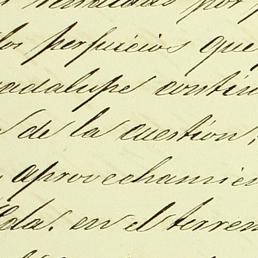 por
los perjuicios que
adalupe contin
de la cuestion,
aprovechamien
Eda. en el terren